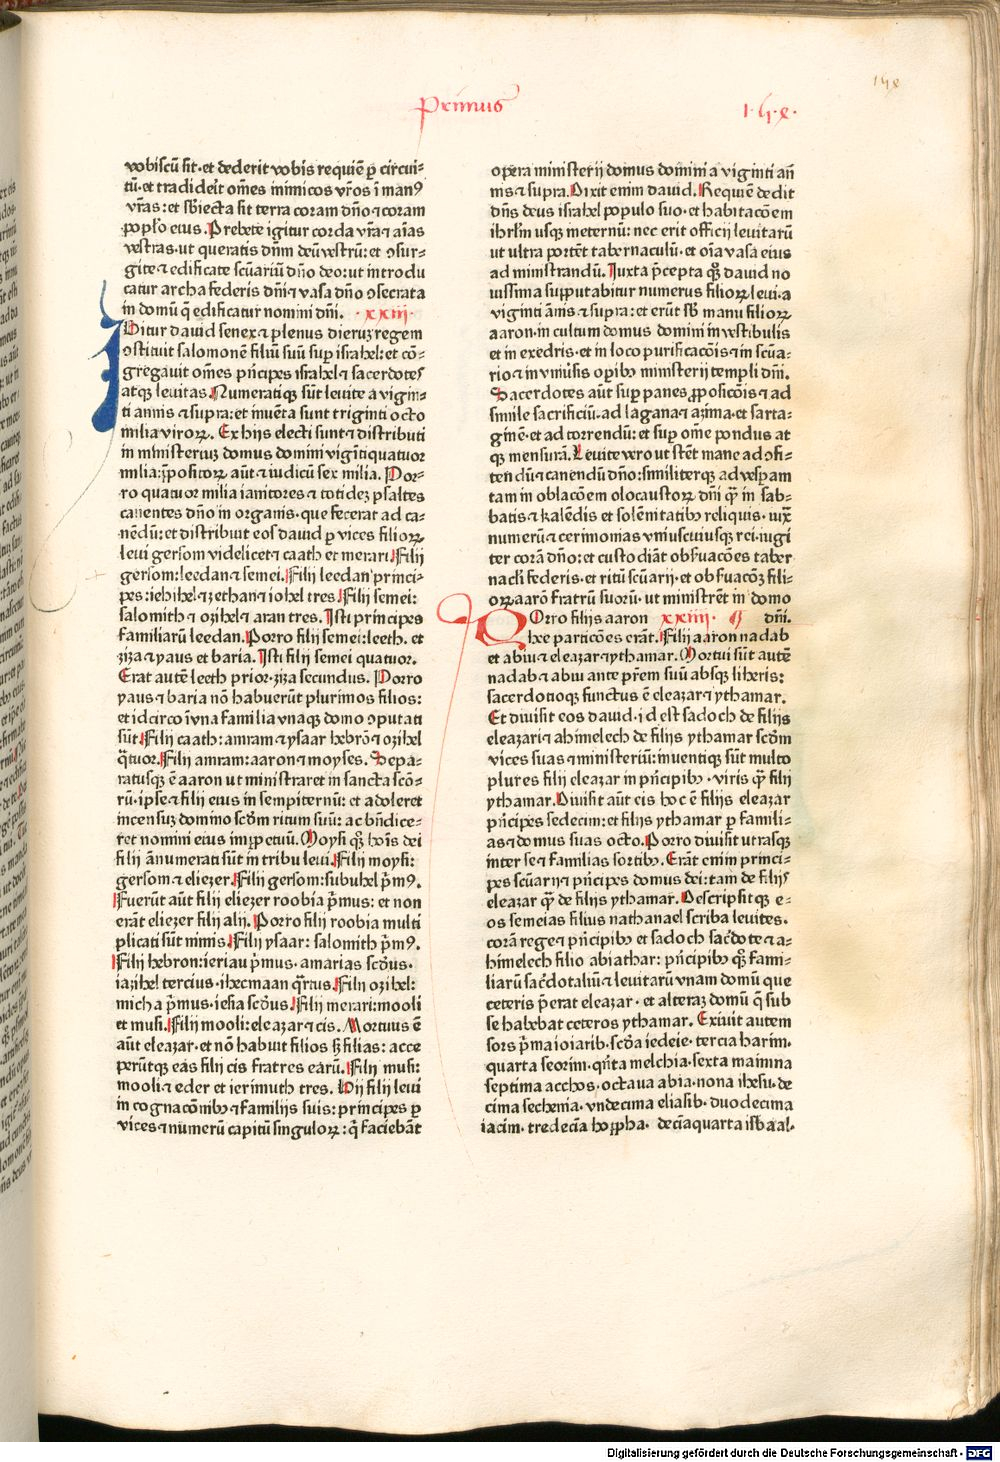 Primus
vobiscū sit· et dederit vobis requiē ꝑ circui⸗
tū· et tradideĩt oēs inimicos vr̄os ī manꝰ
vr̄as: et sb̄iecta sit terra coram dn̄o ⁊ coram
popl̓o eius. Prebete igitur corda vr̄a ⁊ aīas
vestras· ut queratis dn̄m deū vestrū: et ꝯsur⸗
gite ⁊ edificate scūariū dn̄o deo: ut introdu
catur archa federis dn̄i ⁊ vasa dn̄o ꝯsecrata
in domū q̄ edificatur nomini dn̄i. ·xxiij·
Igitur dauid senex ⁊ plenus dieruꝫ regem
ꝯstituit salomonē filiū suū suꝑ israhel: et cō⸗
gregauit om̄es pn̄cipes israhel ⁊ sacerdotes
atqꝫ leuitas. Numeratiqꝫ sūt leuite a vigin⸗
ti annis ⁊ supra: et inuēta sunt triginti octo
milia viroꝝ. Ex hijs electi sunt ⁊ distributi
in ministeriuꝫ domus domini vigīti quatuor
milia: p̄positoꝝ aūt ⁊ iudicū sex milia. Por⸗
ro quatuor milia ianitores ⁊ totideꝫ psaltes
canentes dn̄o in organis· que fecerat ad ca⸗
nēdū: et distribuit eos dauid ꝑ vices filioꝝ
leui gersom videlicet ⁊ caath et merari. Filij
gersom: leedan ⁊ semei. Filij leedan princi⸗
pes: iehihel ⁊ ꝫethan ⁊ iohel tres. Filij semei:
salomith ⁊ oꝫihel ⁊ aran tres. Isti principes
familiarū leedan. Porro filij semei: leeth. et
ꝫiꝫa ⁊ yaus et baria. Isti filij semei quatuor.
Erat autē leeth prior· ꝫiꝫa secundus. Porro
yaus ⁊ baria nō habuerūt plurimos filios:
et idcirco ī vna familia vnaqꝫ domo ꝯputati
sūt. Filij caath: amram ⁊ ysaar hebrō ⁊ oꝫihel
q̄tuor. Filij amram: aaron ⁊ moyses. Sepa⸗
ratusqꝫ ē aaron ut ministraret in sancta scō⸗
rū· ipse ⁊ filij eius in sempiternū: et adoleret
incensuꝫ domino scd̄m ritum suū: ac bn̄dice⸗
ret nomini eius imꝑpetuū. Moysi qꝫ hoīs dei
filij ānumerati sūt in tribu leui. Filij moysi:
gersom ⁊ elieꝫer. Filij gersom: subuhel p̄mꝰ.
Fuerūt aūt filij elieꝫer roobia p̄mus: et non
erāt elieꝫer filij alij. Porro filij roobia multi
plicati sūt nimis. Filij ysaar: salomith p̄mꝰ.
Filij hebron: ieriau p̄mus· amarias scd̄us·
iaꝫihel tercius· ihecmaan q̄rtus. Filij oꝫihel:
micha p̄mus· iesia scd̄us. Filij merari: mooli
et musi. Filij mooli: eleaꝫar ⁊ cis. Mortuus ē
aūt eleaꝫar· et nō habuit filios sꝫ filias: acce
perūtqꝫ eas filij cis fratres earū. Filij musi:
mooli ⁊ eder et ierimuth tres. Hij filij leui
in cognacōnibꝰ ⁊ familijs suis: principes ꝑ
vices ⁊ numerū capitū singuloꝝ: q̄ faciebāt
opera ministerij domus domini a viginti an̄
nis ⁊ supra. Dixit enim dauid. Requiē dedit
dn̄s deus israhel populo suo· et habitacōem
ihrl̄m usqꝫ meternū: nec erit officij leuitarū
ut ultra portēt tabernaculū· et oīa vasa eius
ad ministrandū. Iuxta p̄cepta qꝫ dauid no
uissima supputabitur numerus filioꝝ leui· a
viginti ānis ⁊ supra: et erūt sb̄ manu filioꝝ
aaron· in cultum domus domini in vestibulis
et in exedris· et in loco purificacōis ⁊ in scūa⸗
rio ⁊ in vniuīsis oꝑibꝰ ministerij templi dn̄i.
Sacerdotes aūt suꝑ panes ꝓposicōis ⁊ ad
simile sacrificiū· ad lagana ⁊ aꝫima· et sarta⸗
ginē· et ad torrendū: et suꝑ om̄e pondus at
qꝫ mensurā. Leuite vero ut stēt mane ad ꝯfi⸗
tendū ⁊ canendū dn̄o: similiterqꝫ ad vesꝑam
tam in oblacōem olocaustoꝝ dn̄i q̄ꝫ in sab⸗
batis ⁊ kalēdis et solēnitatibꝰ reliquis· iux̄
numerū ⁊ cerimonias vniuscuiusqꝫ rei· iugi
ter corā dn̄o: et custodiāt obẜuacōes taber
nacl̓i federis· et ritū scūarij· et obẜuacōꝫ fili⸗
oꝝ aarō fratrū suorū· ut ministrēt in domo
Porro filijs aaron xxiiij· ¶ dn̄i.
hee particōes erāt. Filij aaron nadab
et abiu ⁊ eleaꝫar ⁊ ythamar. Mortui sūt autē
nadab ⁊ abiu ante pr̄em suū absqꝫ liberis:
sacerdotioqꝫ functus ē eleaꝫar ⁊ ythamar.
Et diuisit eos dauid· id est sadoch de filijs
eleaꝫari ⁊ ahimelech de filijs ythamar scd̄m
vices suas ⁊ ministeriū: inuentiqꝫ sūt multo
plures filij eleaꝫar in pn̄cipibꝰ· viris q̄ꝫ filij
ythamar. Diuisit aūt eis hoc ē filijs eleaꝫar
pn̄cipes sedecim: et filijs ythamar ꝑ famili⸗
as ⁊ domus suas octo. Porro diuisit utrasqꝫ
inter se ⁊ familias sortibꝰ. Erāt enim princi⸗
pes scūarij ⁊ pn̄cipes domus dei: tam de filijs
eleaꝫar q̄ꝫ de filijs ythamar. Descripsitqꝫ e⸗
os semeias filius nathanael scriba leuites·
corā rege ⁊ pn̄cipibꝰ et sadoch sac̄dote ⁊ a⸗
himelech filio abiathar: pn̄cipibꝰ qꝫ fami⸗
liarū sac̄dotaliū ⁊ leuitarū vnam domū que
ceteris p̄erat eleaꝫar· et alteraꝫ domū q̄ sub
se habebat ceteros ythamar. Exiuit autem
sors p̄ma ioiarib· scd̄a iedeie· tercia harim·
quarta seorim· qn̄ta melchia· sexta maimna
septima acchos· octaua abia· nona ihesu· de
cima sechenia· vndecima eliasib· duodecima
iacim· tredecīa hoppha· decīaquarta isbaal·
Digitalisierung gefördert durch die Deutsche Forschungsgemeinschaft - DFG